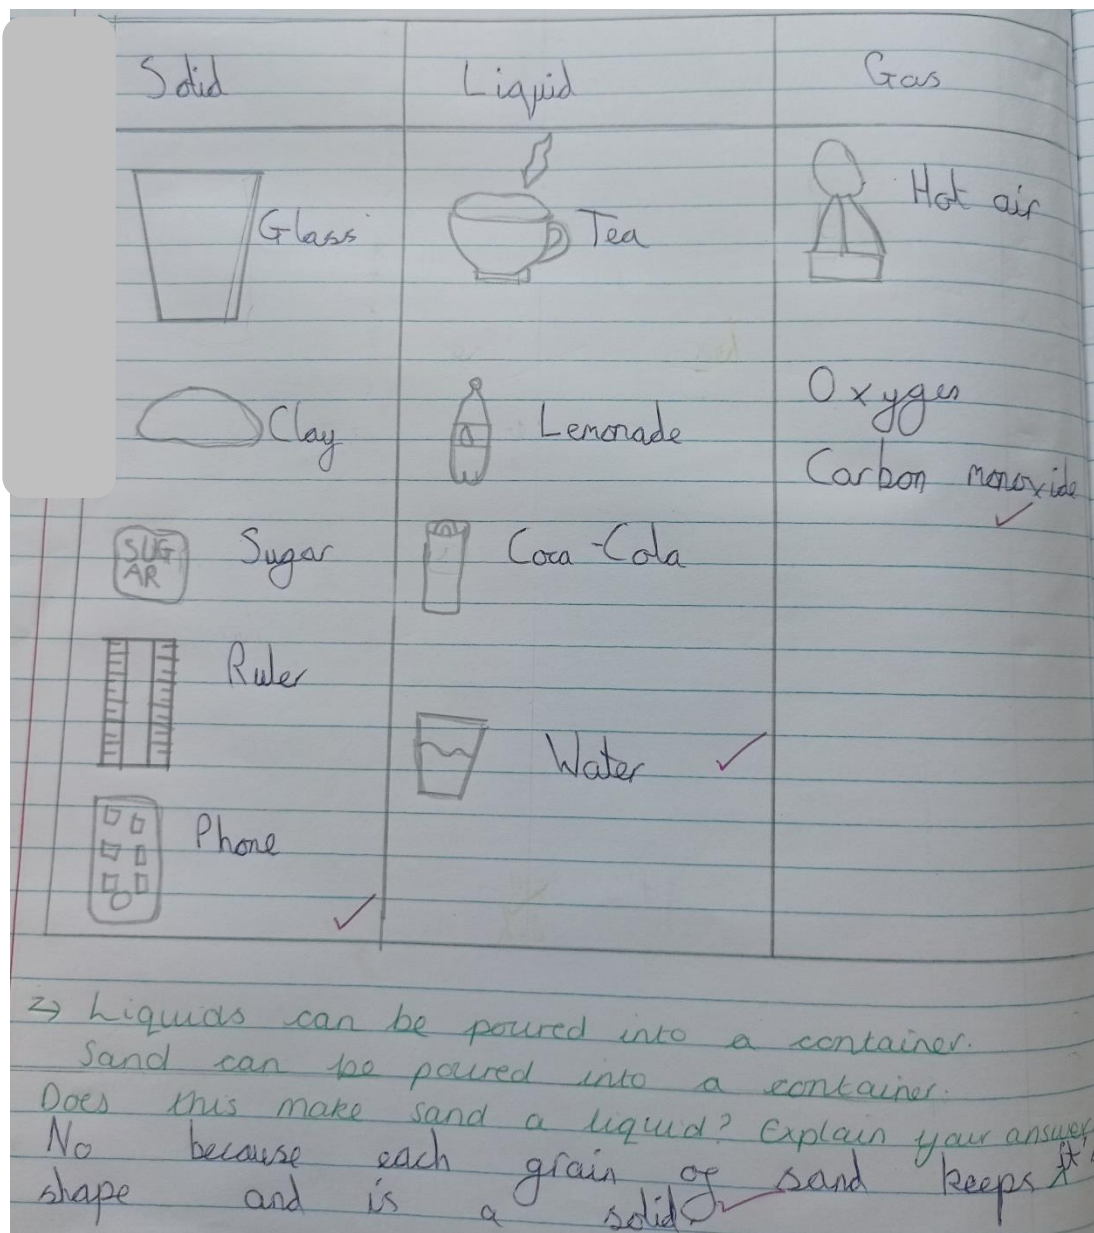 Solid Liquid Gas
Glass Tea Hot air
Clay Lemonade Oxygen
Carbon monoxide
SUG
AR
Sugar Coca-Cola
Ruler
Water
Phone
→ Liquids can be poured into a container.
Sand can be poured into a container.
Does this make sand a liquid? Explain your answer
No because each grain of sand keeps it's
shape and is a solid.